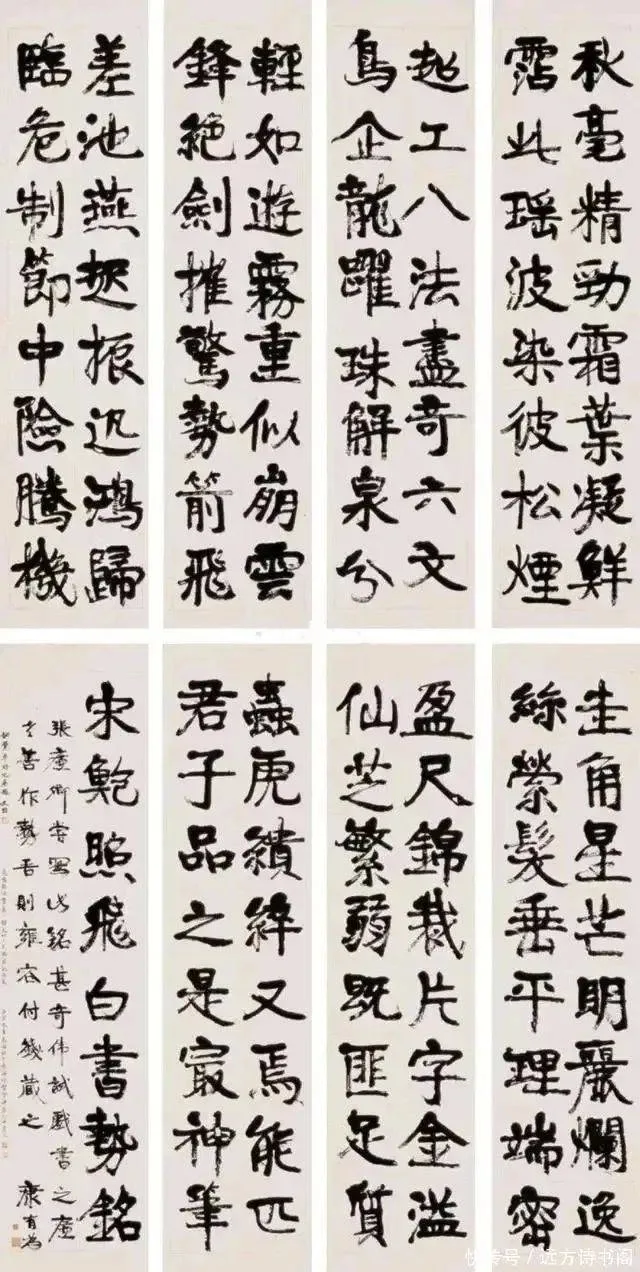 秋毫精勁霜葉凝鮮
霑此瑤波染彼松煙
超工八法盡奇六文
鳥企龍躍珠解泉分
輕如遊霧重似崩雲
鋒絕劍摧驚勢箭飛
差池燕起振迅鴻歸
臨危制節中險騰機
圭角星芒明麗爛逸
絲縈髮垂平理端密
盈尺錦裁片字金溢
仙芝繁弱既匪足質
蟲虎續綷又焉能匹
君子品之是冣神筆
宋鮑照飛白書勢銘
張廉卿嘗寫此銘甚奇偉試戲書之廉
老善作勢吾則雍容付籛藏之 康有為
快传号 / 远方诗书阁